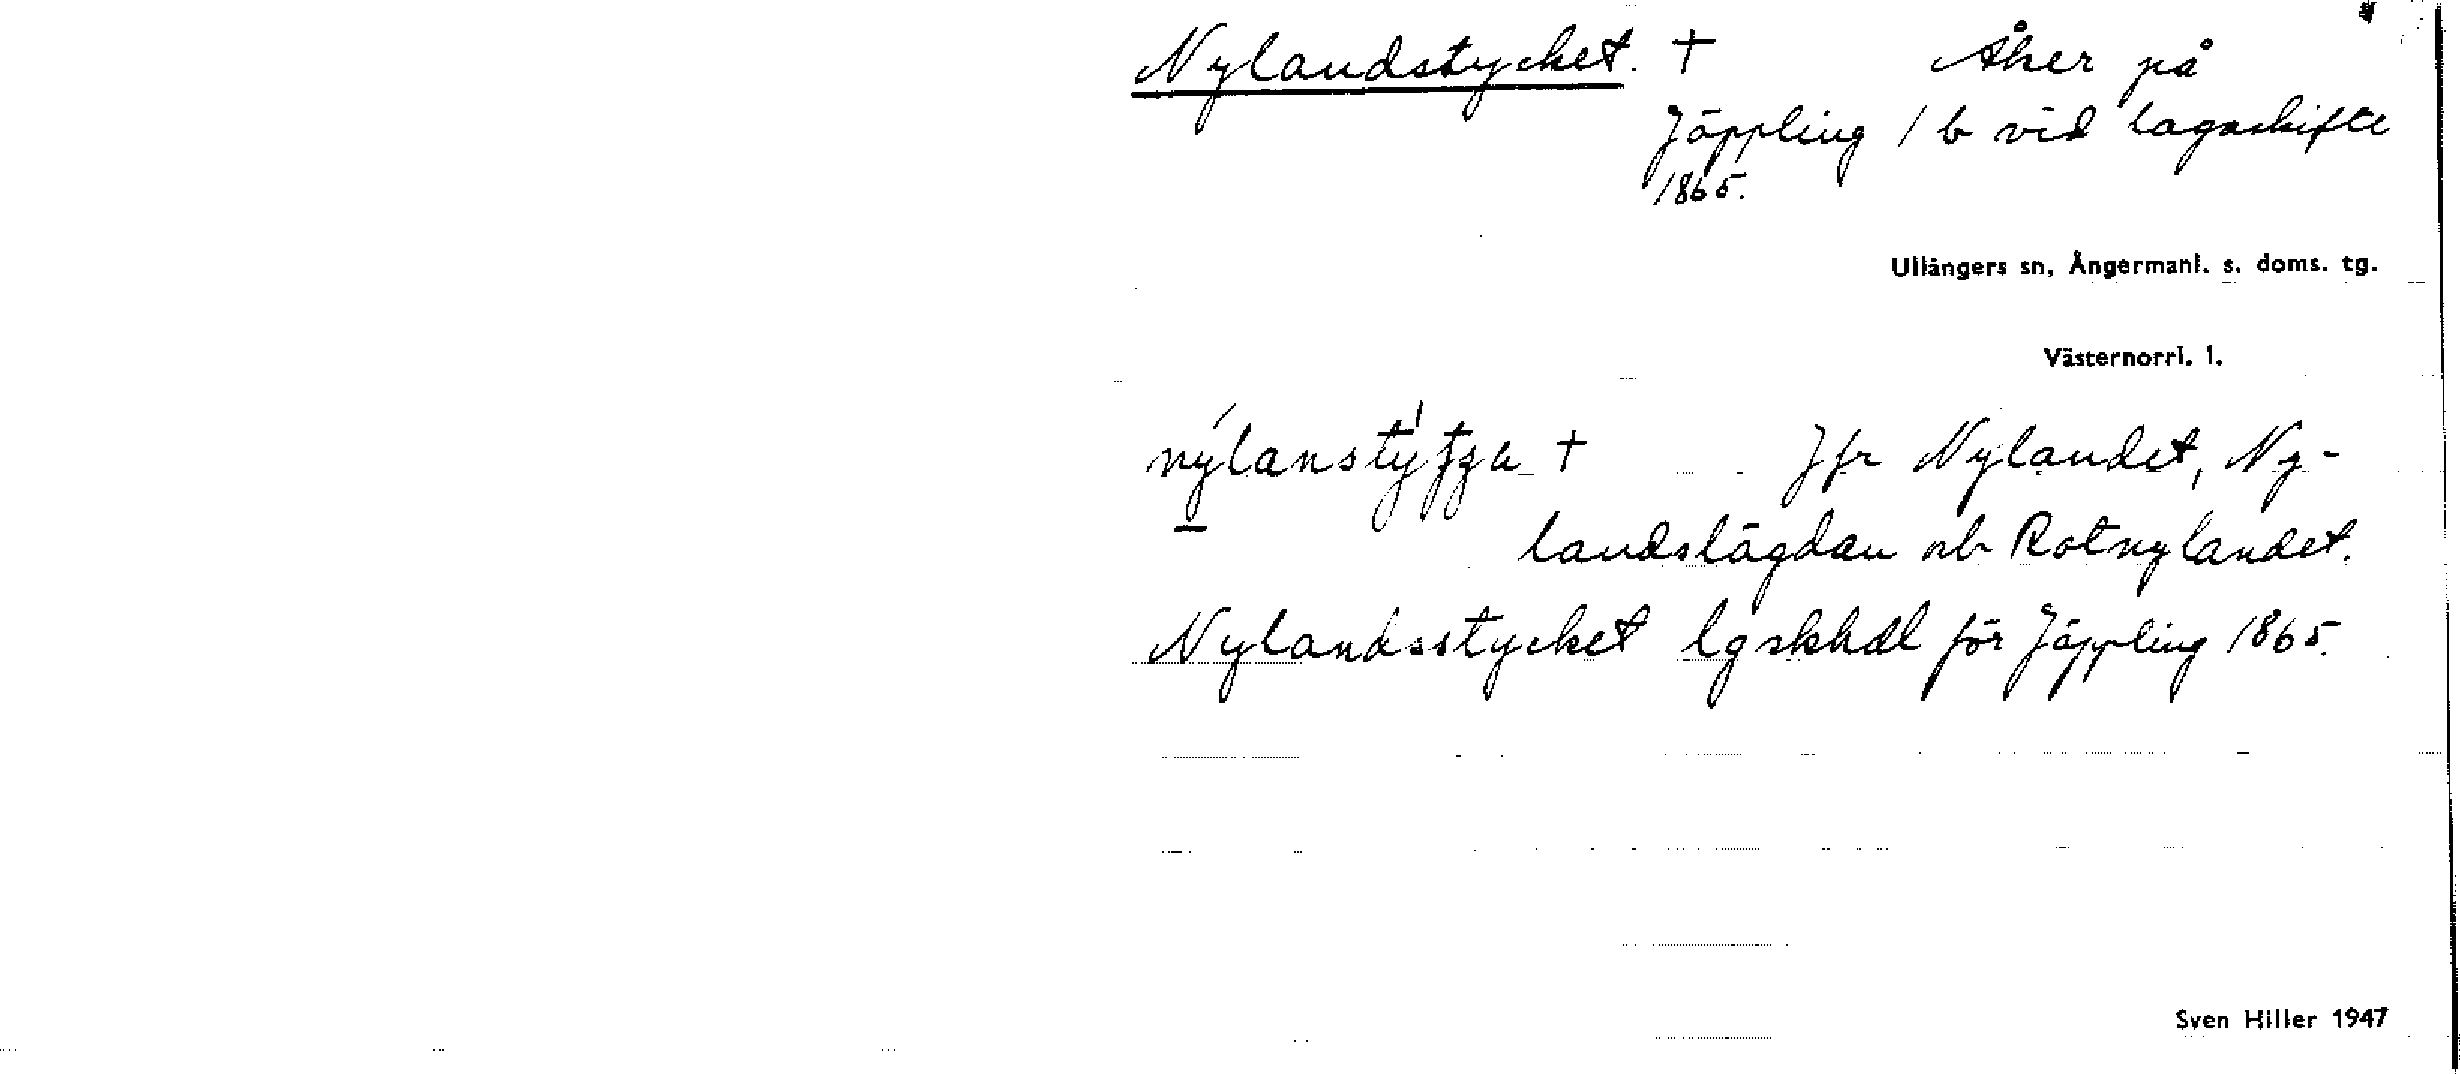 Nylandstycket. † Åker på
Jäppling 1 b vid lagaskifte
1865.
Ullångers sn, Ångermanl. s. doms. tg.
Västernorrl. l.
† Jfr Nylandet, Ny-
landslägdan ob Rotnylandet.
Nylandsstycket lgskhdl för Jäppling 1865.
Sven Hiller 1947